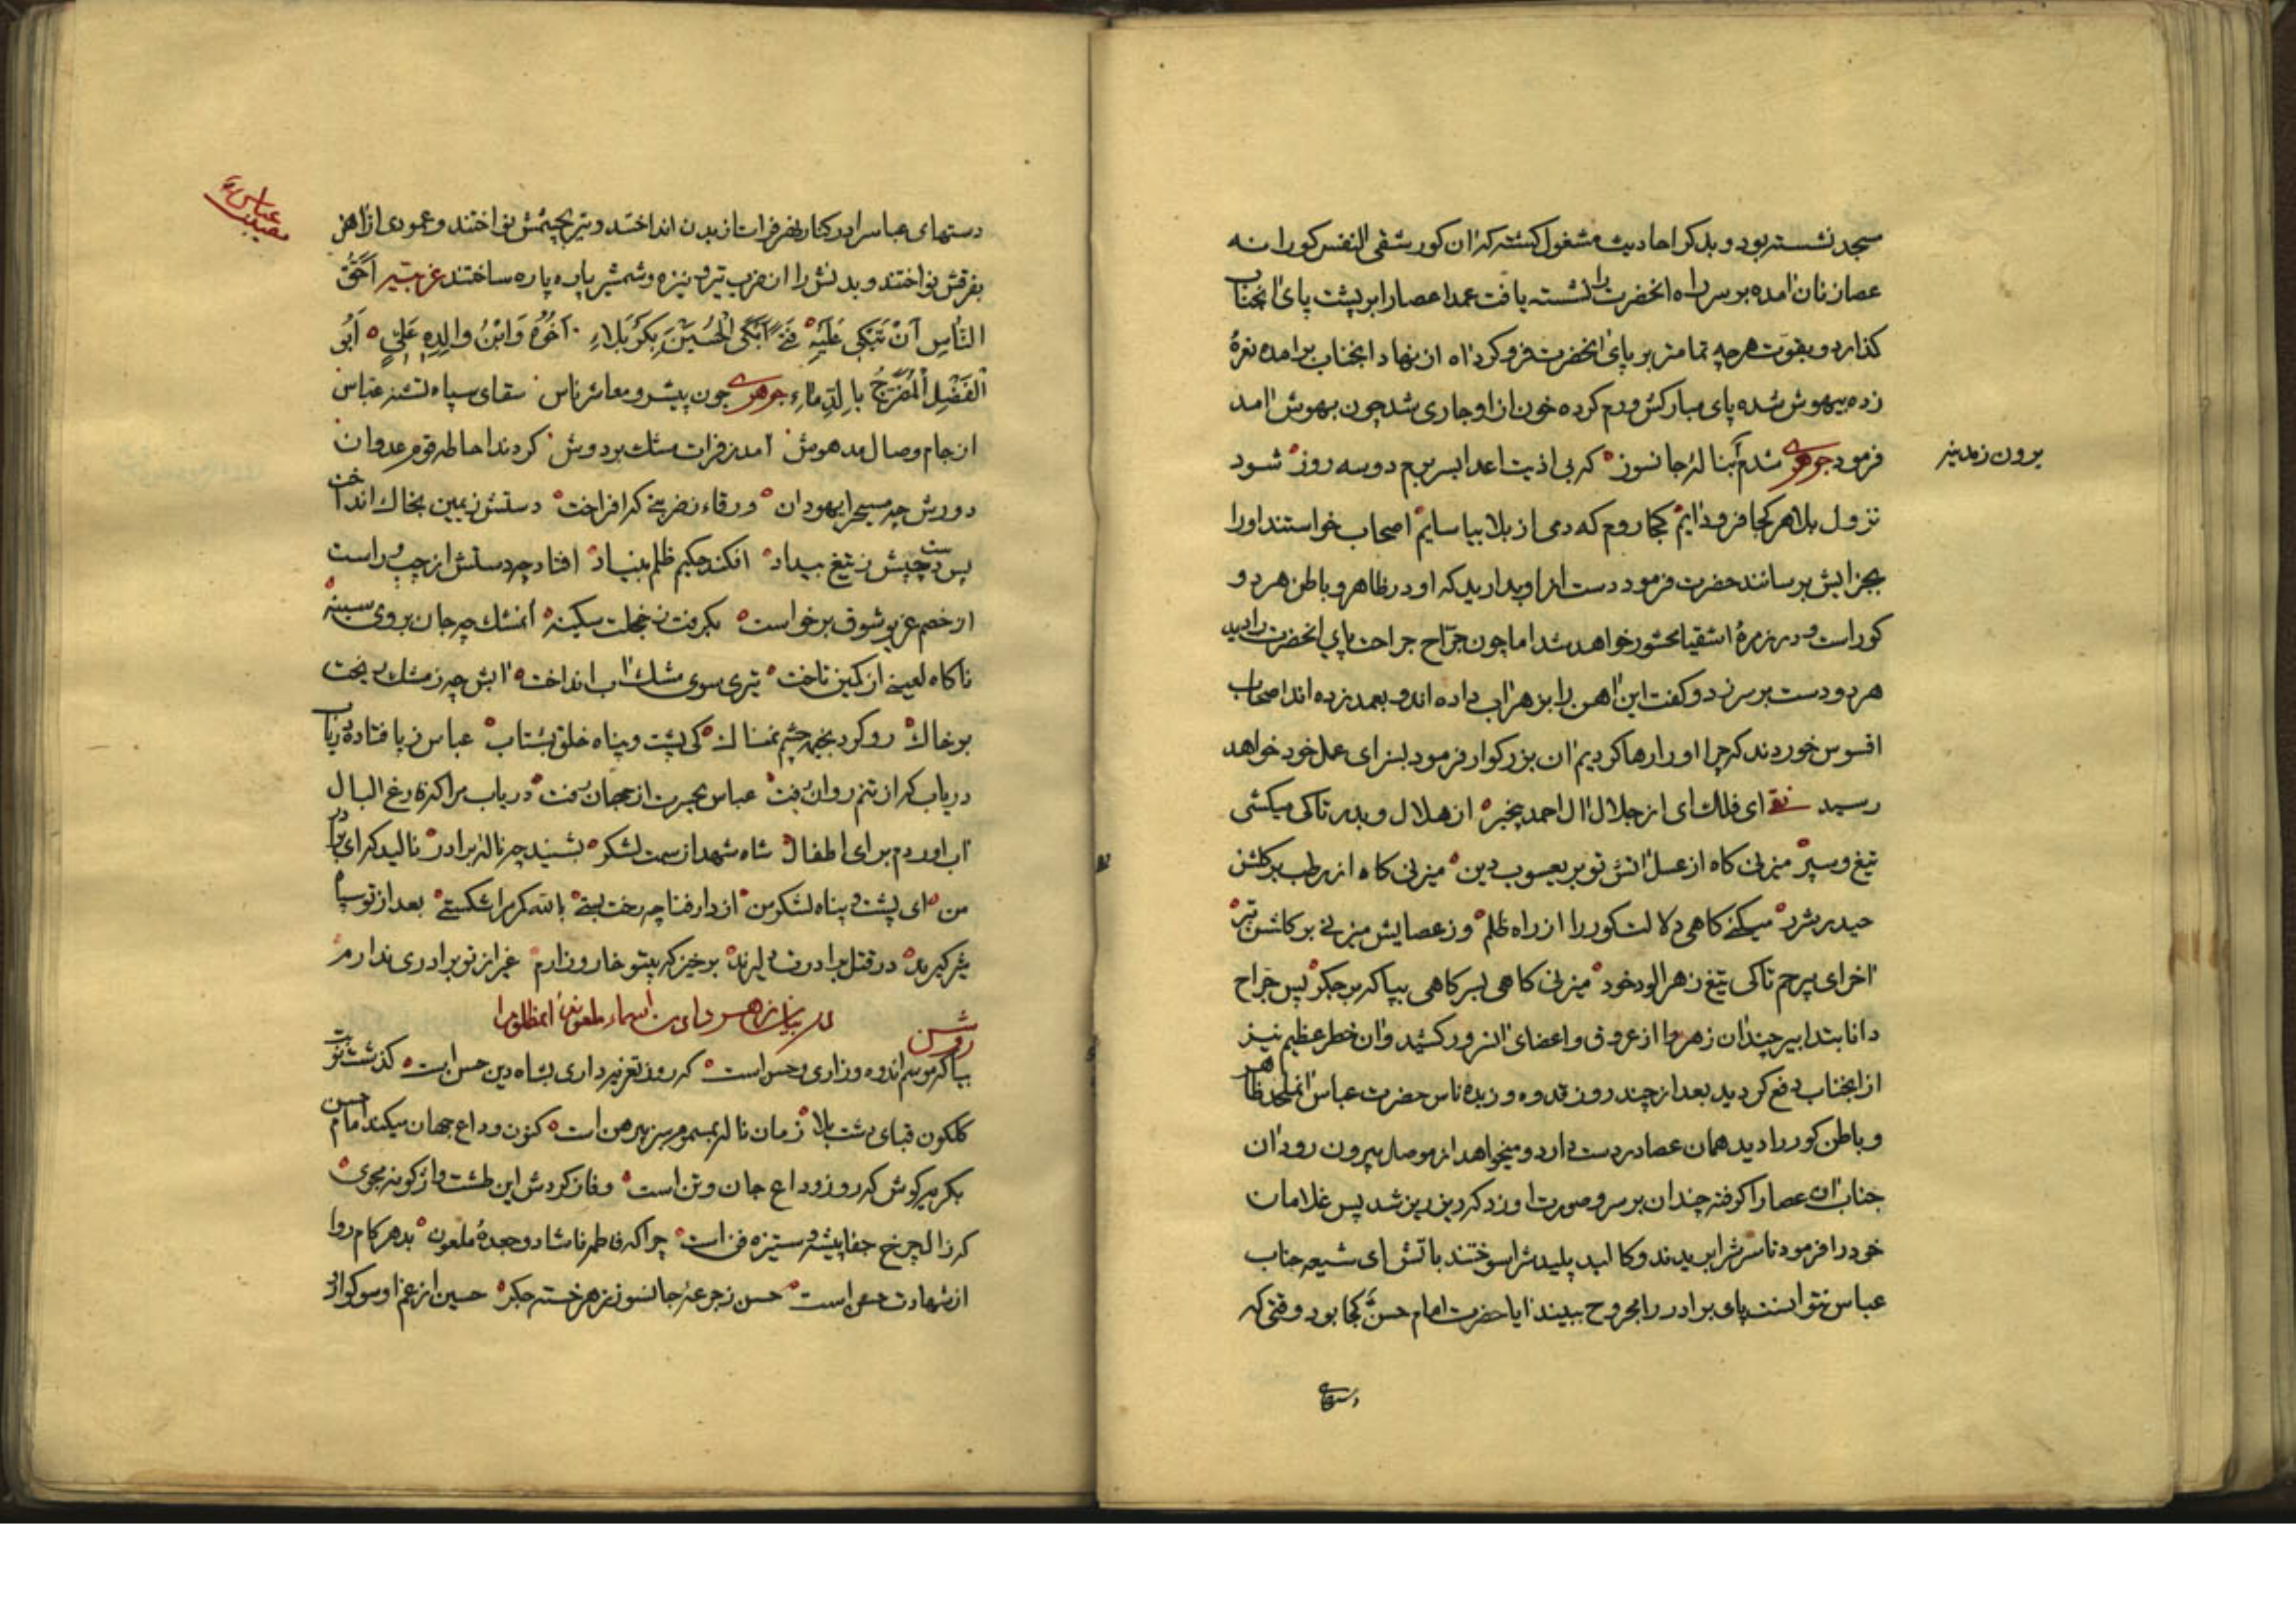 مسجد نشسته بود و بذکر احادیث مشغول کشته که ان کور شقی النفس کورانه
عصا زنان امده بر سر راه انحضرت را نشسته یافت عمدا عصا را بر پشت پای انجناب
کذارد و بقوت هرچه تمامتر بر پای انحضرت فرو کرد اه از نهاد انجناب برامده نعرهٔ
زده بیهوش شده پای مبارکش ورم کرده خون از او جاری شد چون بهوش امد
فرمود جوهری شدم بنالهٔ جانسوز که بی اذیت اعدا بسر برم دو سه روز شود
برون ز مدینه
نزول بلا هر کجا فرود ایم کجا روم که دمی از بلا بیاسایم اصحاب خواستند او را
بجزایش برسانند حضرت فرمود دست از او بدارید که او در ظاهر و باطن هر دو
کور است و در زمرهٔ اشقیا محشور خواهد شد اما چون جراح جراحت پای انحضرت را دید
هر دو دست بر سر زد و کفت این اهن را بزهر اب داده اند و بعمد زده اند اصحاب
افسوس خوردند که چرا او را رها کردیم ان بزرکوار فرمود بسزای عمل خود خواهد
رسید ای فلک ای از جلال ال احمد بیخبر از هلال و بدر تا کی میکشی
تیغ و سپر میزنی کاه از عسل اتش تو بر یعسوب دین میزنی کاه از رطب بر کلشن
حیدر شرر میکنی کاهی دلالت کور را از راه ظلم وز عصایش میزنی بر کاشن تبر
اخر ای بیرحم تا کی تیغ زهر الود خود میزنی کاهی بسر کاهی بپا که بر جکر پس جراح
دانا بتدابیر چند ان زهر را از عروق و اعضای انسرور کشید و ان خطر عظیم نیز
از انجناب دفع کردید بعد از چند روز قدوه و زبدهٔ ناس حضرت عباس انملحد ظاهر
و باطن کور را دید همان عصا در دست دارد و میخواهد از موصل بیرون رود ان
جناب ان عصا را کرفته چندان بر سر و صورت او زد که ریز ریز شد پس غلامان
خود را فرمود تا سرش را بریدند و کالبد پلیدش را سوختند باتش ای شیعه جناب
عباس نتوانست پای برادر را مجروح ببیند ایا حضرت امام حسن کجا بود وقتی که
دستهای
دستهای عباس را در کنار نهر فرات از بدن انداختند و تیر بچشمش نواختند و عمودی از اهن
عباس
بفرقش نواختند و بدنش را از ضرب تیر و نیزه و شمشیر پاره پاره ساختند احق
الناس ان تبکی علیه فتی ابکی الحسین بکربلاء اخوه و ابن والده علی ابو
الفضل المضرج بالدماء جوهری چون پیشرو معاشر ناس سقای سپاه تشنه عباس
از جام وصال مدهوش امد ز فرات مشک بر دوش کردند احاطه قوم عدوان
دورش چه مسیح را یهودان ورقاء بضربتی که افراخت دستش ز یمین بخاک انداخت
پس دست چپش ز تیغ بیداد افکند حکیم ظلم بنیاد افتاد چه دستش از چپ و راست
از خصم عزیو شوق برخواست بکرفت ز خجلت سکینه انمشک چه جان بروی سینه
ناکاه لعینی از کمین تاخت تیری سوی مشک اب انداخت ابش چه ز مشک ریخت
بر خاک رو کرد بخیمه چشم نمناک کی پشت و پناه خلق بشتاب عباس ز پا فتاده دریاب
دریاب که از تنم روان رفت عباس بحسرت از جهان رفت دریاب مرا که فارغ البال
اب اوردم برای اطفال شاه شهدا ز سمت لشکر بشنید چه ناله برادر نالید که ای برادر
من ای پشت و پناه لشکر من از دار فنا چه رخت بستی بالله کمرم را شکستی بعد از تو سپاه
شیر کیرند در قتل برادرت دلیرند برخیز که بیتو خار و زارم غیر از تو برادری ندارم
روشن
بیا که موسم اندوه و زاری و حسن است که روز تعزیه داری بشاه دین حسن است کذشت نوبت
کلکون قبای دشت بلا زمان ناله بمسموم سبز پیرهن است کنون وداع جهان میکند امام حسن
بکریه کوش که روز وداع جان و تن است وفا ز کردش این طشت واژکونه مجوی
که زال چرخ جفا پیشه و ستیزه فن است چرا که فاطمه ناشاد و جعدهٔ ملعون بدهر کام روا
از شهادت حسن است حسن ز جرعهٔ جانسوز زهر خسته جکر حسین از غم او سوکوار